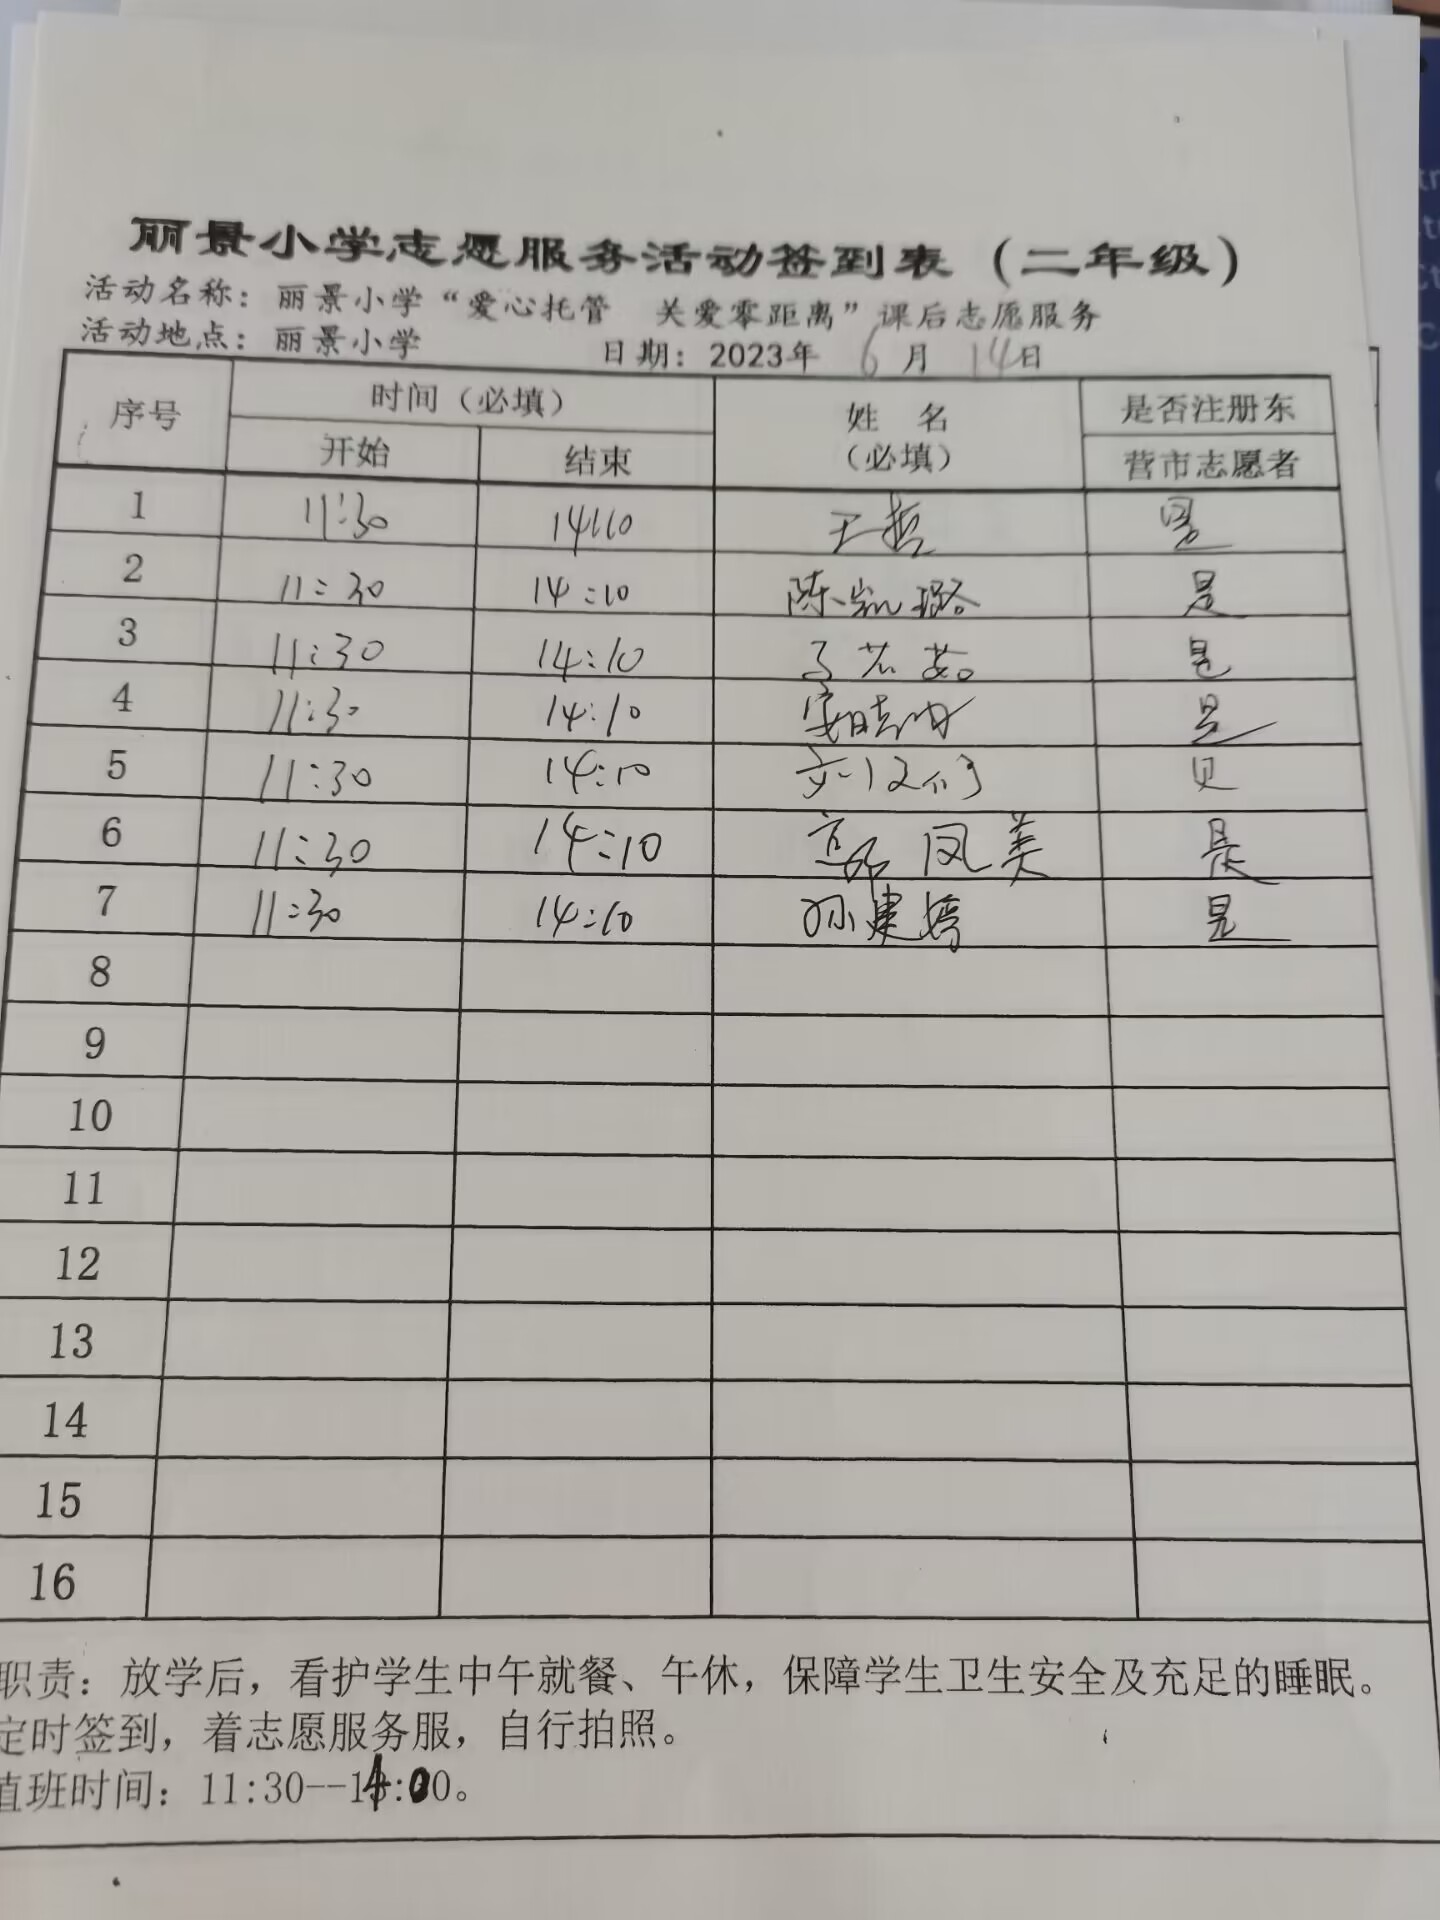 丽景小学志愿服务活动签到表（二年级）
活动名称：丽景小学“爱心托管 关爱零距离”课后志愿服务
活动地点：丽景小学 日期：2023年 6月 14日
序号 时间（必填） 姓 名（必填） 是否注册东营市志愿者
开始 结束
1 11:30 14:10 王哲 是
2 11:30 14:10 陈凯璐 是
3 11:30 14:10 是
4 11:30 14:10 是
5 11:30 14:10 是
6 11:30 14:10 高凤美 是
7 11:30 14:10 孙建婷 是
8
9
10
11
12
13
14
15
16
职责：放学后，看护学生中午就餐、午休，保障学生卫生安全及充足的睡眠。
定时签到，着志愿服务服，自行拍照。
值班时间：11:30--14:00。